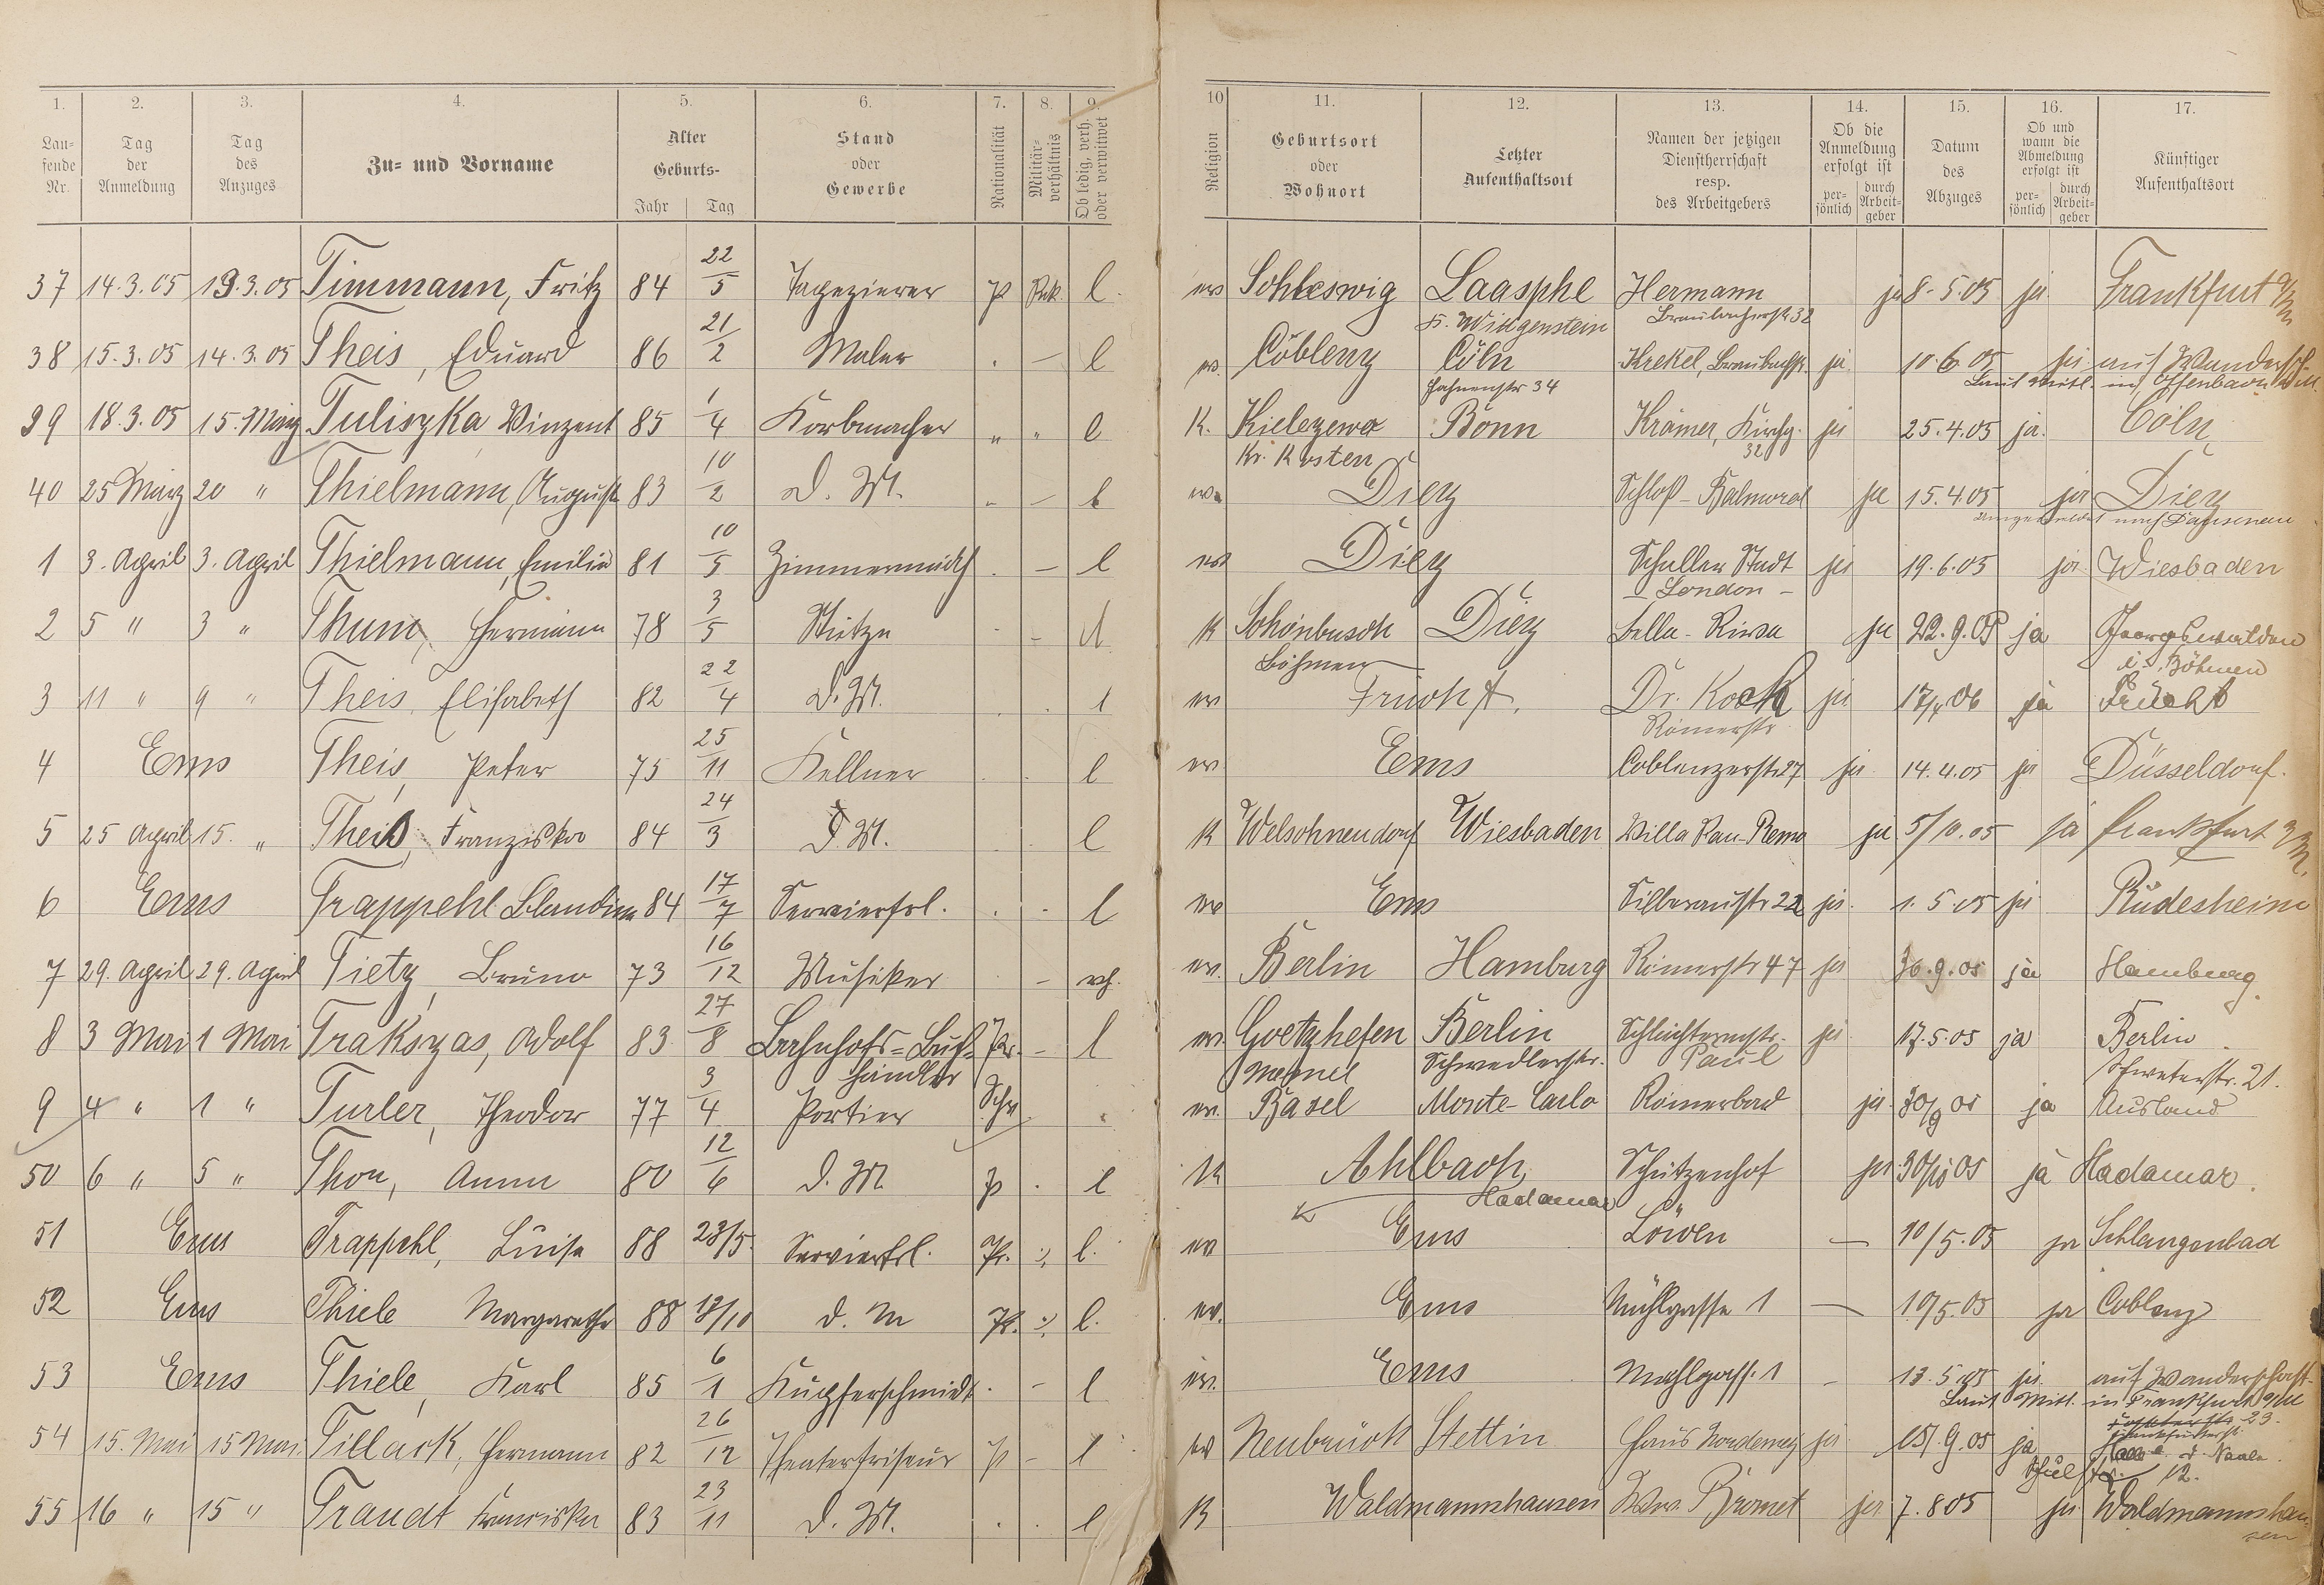 1. 2. 3. 4. 5. 6. 7. 8. 9. 10 11. 12. 13. 14. 15. 16. 17.
Lau-
fende
Nr.
Tag
der
Anmeldung
Tag
des
Anzuges
Zu- und Vorname
Alter
Geburts-
Jahr Tag
Stand
oder
Gewerbe
Nationalität
Militär-
verhältnis
Ob ledig, verh.
oder verwitwet
Religion
Geburtsort
oder
Wohnort
Letzter
Aufenthaltsort
Namen der jetzigen
Dienstherrschaft
resp.
des Arbeitgebers
Ob die
Anmeldung
erfolgt ist
per-
sönlich
durch
Arbeit-
geber
Datum
des
Abzuges
Ob und
wann die
Abmeldung
erfolgt ist
per-
sönlich
durch
Arbeit-
geber
Künftiger
Aufenthaltsort
37 14.3.05 13.3.05 Timmann, Fritz 84 22/5 Tapezierer P l. ev Schleswig Laasphe Hermann ja 8.5.05 ja Frankfurt a/M
Kr. Wittgenstein Braubacherstr. 32
38 15.3.05 14.3.05 Theis, Eduard 86 21/2 Maler . — l ev. Coblenz Cöln Krekel, Braubachstr. ja. 10.6.05 ja auf Wandersch.
Hahnenstr 34 Laut Mitl. in Offenbach a/M
39 18.3.05 15. März Tuliszka Vinzent 85 1/4 Korbmacher „ „ l K. Kielczewo Bonn Krämer, Kirchg. ja 25.4.05 ja. Cöln
Kr. Kosten 32
40 25 März 20 „ Thielmann, August 83 10/2 D. M. „ — l ev. Diez Schloß-Balmoral ja 15.4.05 ja Diez
nach Dausenau
1 3. April 3. April Thielmann, Emilie 81 10/5 Zimmermädch . — l ev Diez Schaller Stadt ja 19.6.05 ja Wiesbaden
— London —
2 5 „ 3 „ Thum, Hermine 78 3/5 Stütze – K Schönbusch Diez Bella-Riva ja 22.9.05 ja Georgswalden
Böhmen i. Böhmen
3 11 „ 9 „ Theis, Elisabeth 82 22/4 D. M. . . l ev Frücht. Dr. Koch ja 17/4 06 ja Frücht
Römerstr
4 Ems Theis, Peter 75 25/11 Kellner . . l ev Ems Coblenzerstr. 27 ja 14.4.05 ja Düsseldorf.
5 25 April 15. „ Theis, Franziska 84 24/3 D. M. . . l K Welschneudorf Wiesbaden Villa ja 5/10.05 ja Frankfurt a/M.
6 Ems Trappehl Claudine 84 17/7 Servierfrl. . . l ev Ems Silberaustr 22 ja. 1.5.05 ja Rüdesheim
7 29. April 29. April Tietz, Bruno 73 16/12 Musiker – vh. ev. Berlin Hamburg Römerstr 47 ja 30.9.05 ja Hamburg.
8 3 Mai 1 Mai Trakszas, Adolf 83 27/8 Bahnhofs-Buch- Pr. – l ev. Goetzhefen Berlin ja 17.5.05 ja Berlin
händler Memel Schwedlerstr. Paul 21.
9 4 „ 1 „ Turler, Theodor 77 3/4 Portier Schw „ ev. Basel Monte-Carlo Römerbad ja. 30/9 05 ja Ausland
50 6 „ 5 „ Thon, Anna 80 12/6 D. M. P . l K Ahlbach, Schützenhof ja 30/10 05 ja Hadamar.
Hadamar
51 Ems Trappehl, Luise 88 23/5. Servierfrl. Pr. ./. l. ev. Ems Löwen — 10/5.05 ja Schlangenbad
52 Ems Thiele Margarethe 88 /10 d. M Pr. ./. l. ev. Ems Mühlgasse 1 — 10/5.05 ja Coblenz
53 Ems Thiele, Karl 85 6/1 Kupferschmidt . – l ev. Ems Mühlgass. 1 – 13.5.05 ja auf Wanderschaft.
Laut Mitl. in Frankfurt a/M
23.
54 15. Mai 15 Mai Tillack, Hermann 82 26/12 Theaterfriseur P – l ev Neubrück Stettin Haus Norderney ja 15.9.05 ja Halle a. d. Saale.
12.
55 16 „ 15 „ Traudt Franziska 83 23/11 D. M. . . l K Waldmannshausen Wwe. ja 7.8 05 ja Waldmannshau-
sen